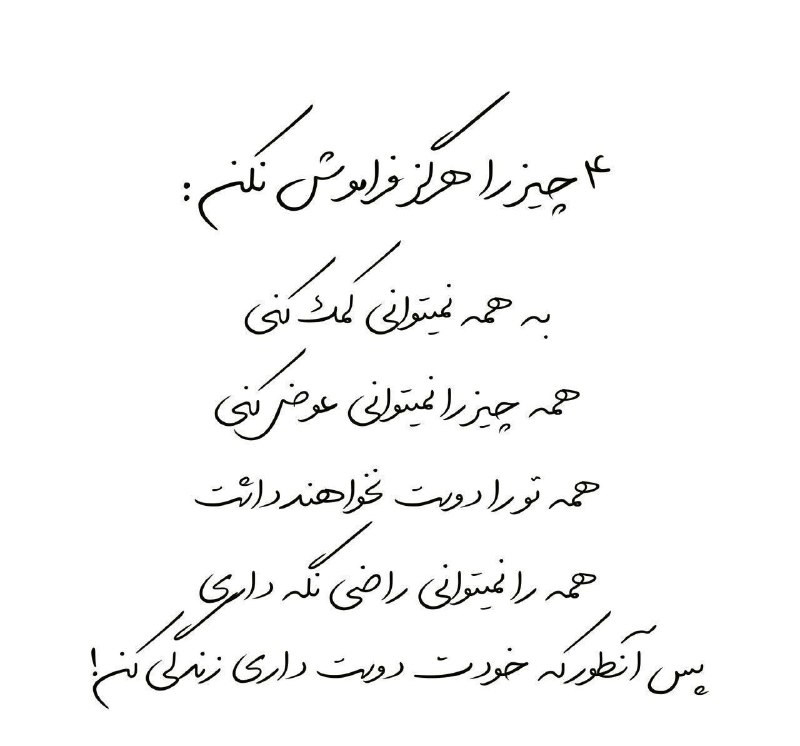 ۴ چیز را هرگز فراموش نکن :
به همه نمیتوانی کمک کنی
همه چیز را نمیتوانی عوض کنی
همه تو را دوست نخواهند داشت
همه را نمیتوانی راضی نگه داری
پس آنطور که خودت دوست داری زندگی کن!